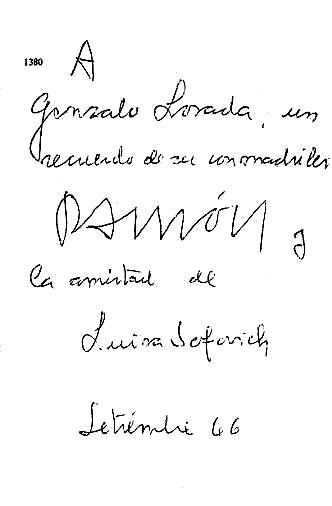 1380
A
Gonzalo Losada, un
recuerdo de su conmadrileñ
RAMÓN y
la amistad de
Luisa Sofovich
Setiembre 66